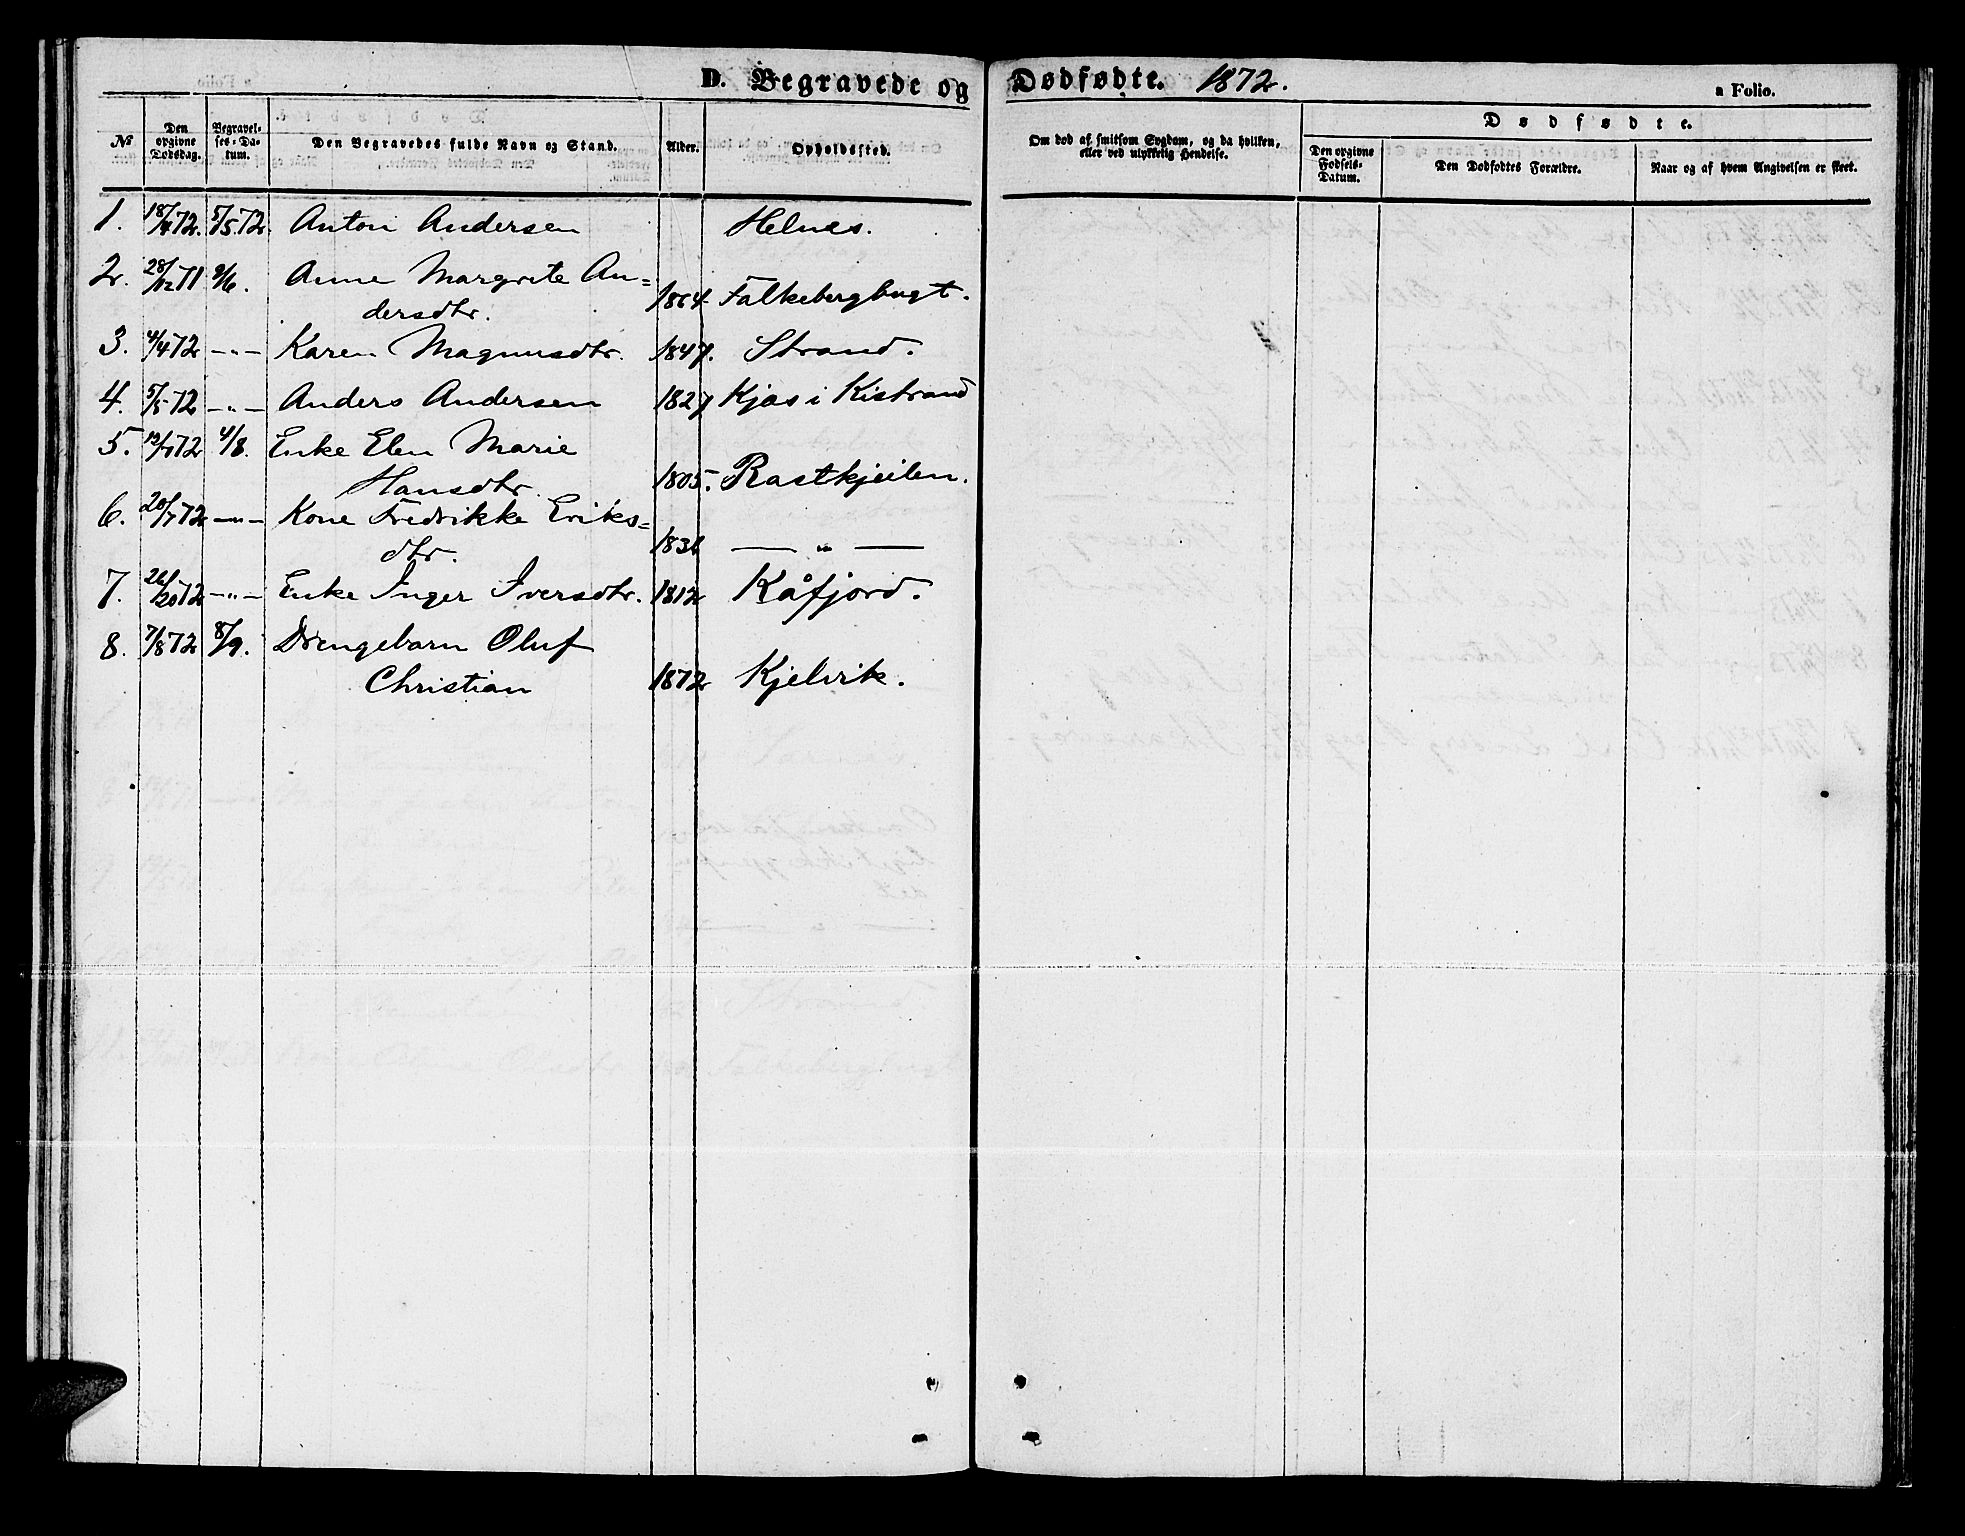 D. Begravede og Dødfødte. 1872.
a Folio.
№
Den opgivne Dødsdag.
Begravelses-Datum.
Den Begravedes fulde Navn og Stand.
Alder.
Opholdssted.
Om død af smitsom Sygdom, og da hvilken, eller ved ulykkelig Hendelse.
Dødfødte.
Den opgivne Fødsels-Datum.
Den Dødfødtes Forældre.
Naar og af hvem Angivelsen er skeet.
1. 18/4 72. 5/5 72. Anton Andersen Helnes.
2. 28/12 71 9/6. Anne Margrete An=
dersdtr. 1864 Falkebergbugt.
3. 4/4 72 -"- Karen Magnusdtr. 1847. Strand.
4. 5/5 72 -"- Anders Andersen 1827 Kjæs i Kistrand
5. 72 4/8. Enke Elen Marie
Hansdtr. 1805. Rastkjeilen.
6. 20/7 72 -"- Kone Fredrikke Eriks=
dtr. — " —
7. 72 -"- Enke Inger Iversdtr. 1812 Kåfjord.
8. 7/8 72 8/9. Drengebarn Oluf
Christian 1872 Kjelvik.